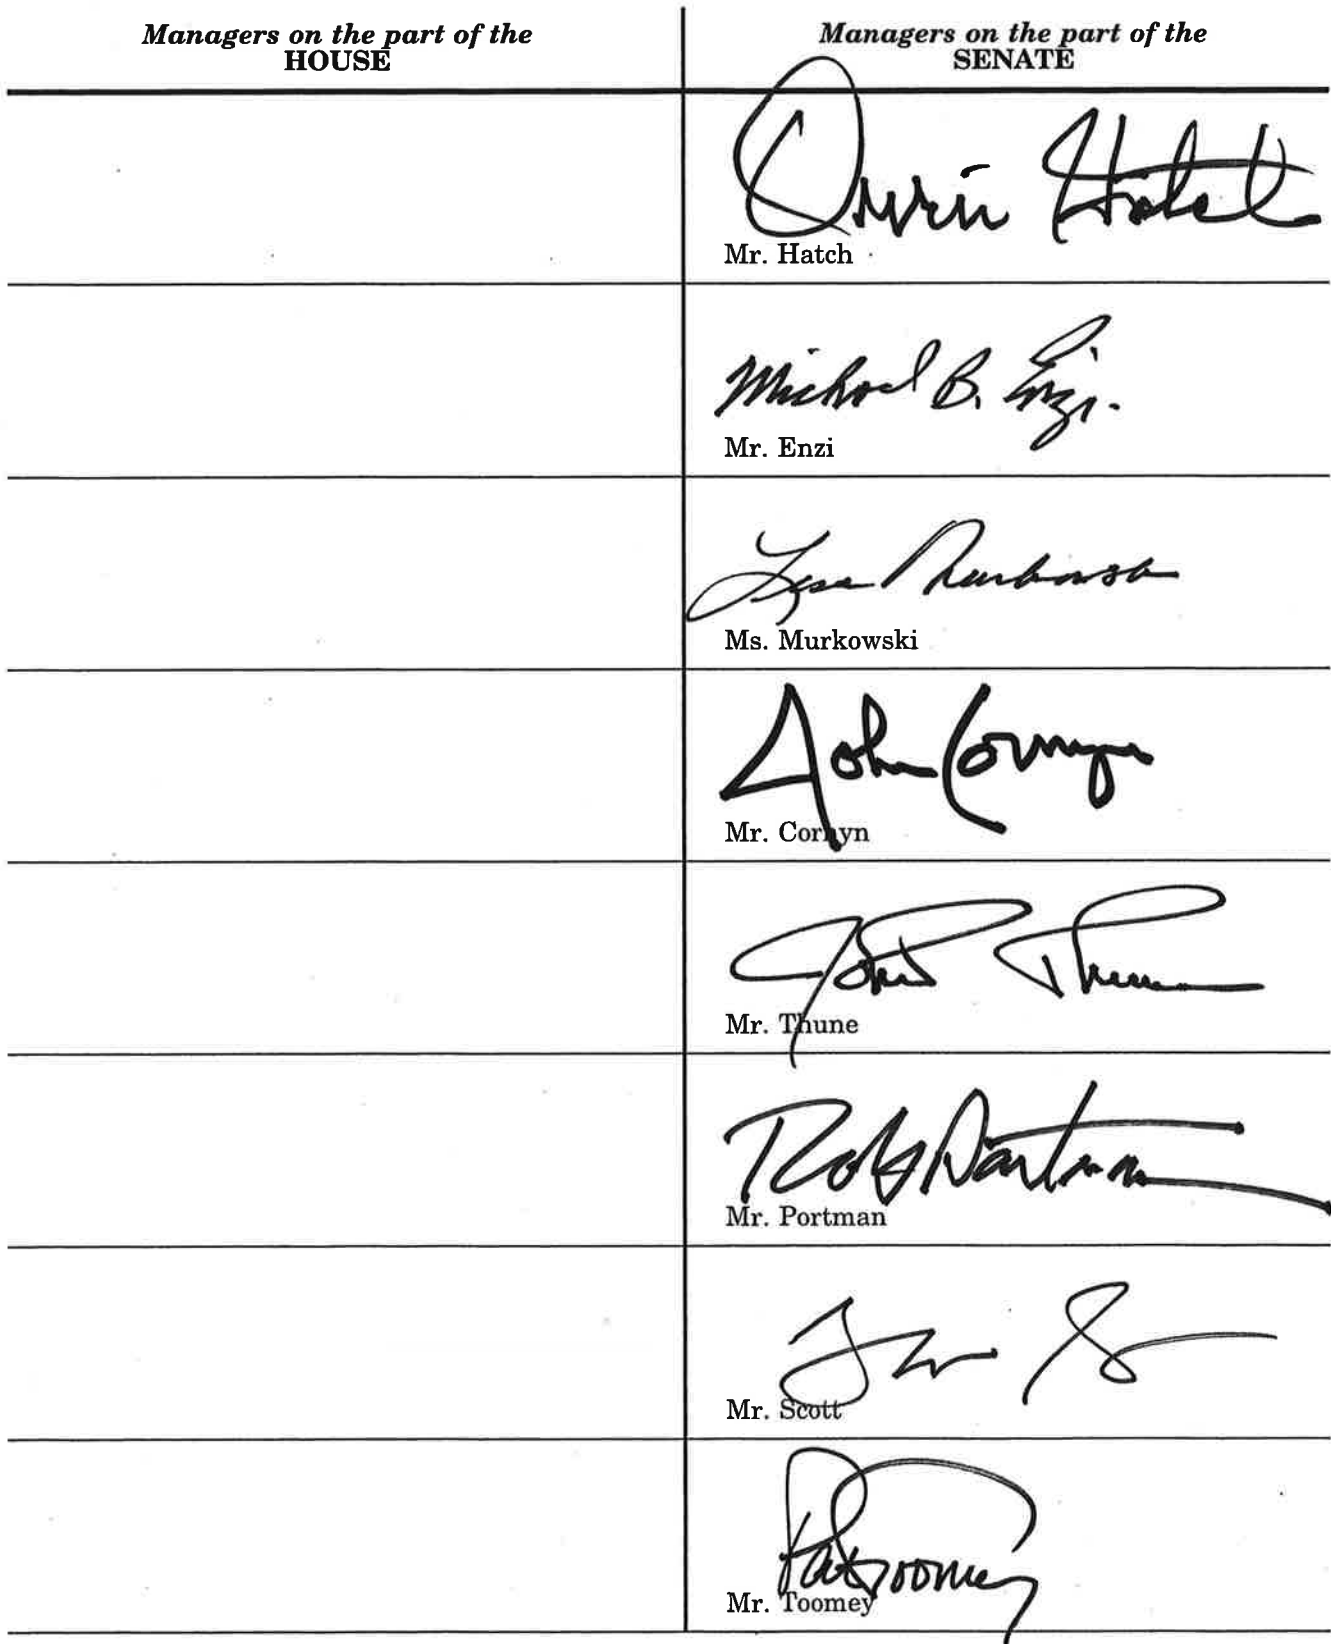 Managers on the part of the
HOUSE
Managers on the part of the
SENATE
Orrin Hatch
Mr. Hatch
Michael B. Enzi
Mr. Enzi
Lisa Murkowski
Ms. Murkowski
John Cornyn
Mr. Cornyn
John Thune
Mr. Thune
Rob Portman
Mr. Portman
Mr. Scott
Pat Toomey
Mr. Toomey